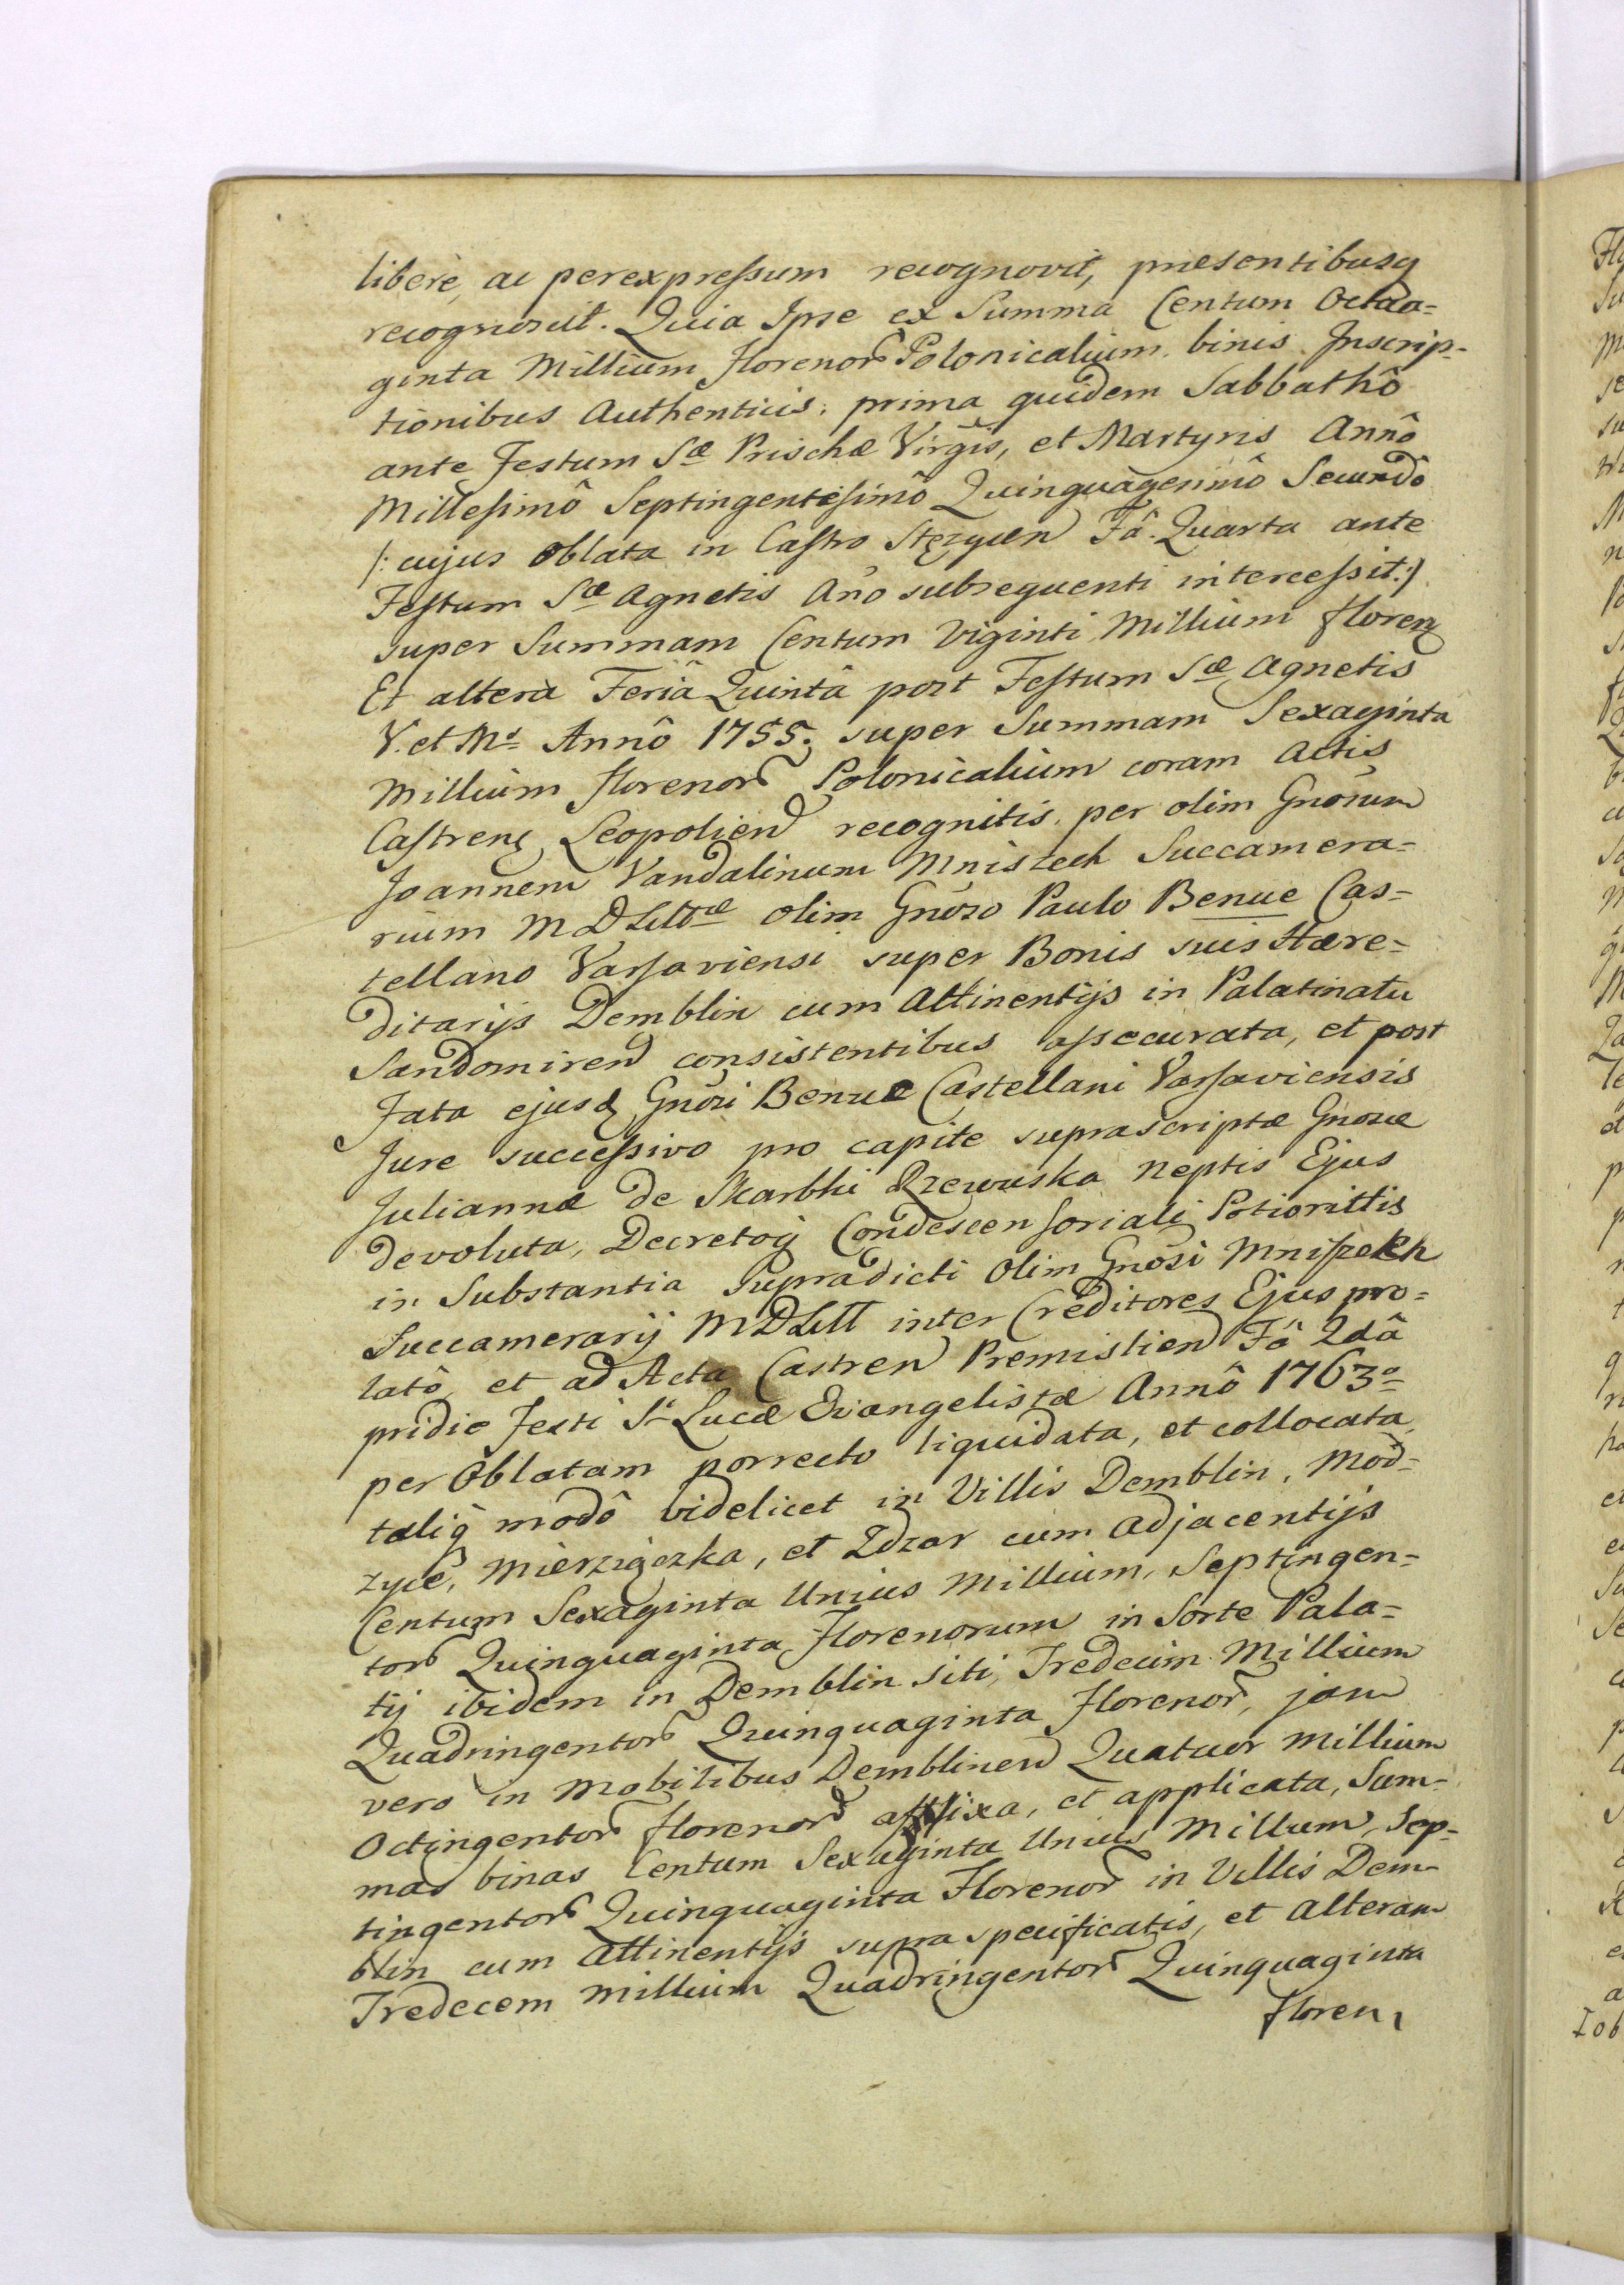 liberè, ac perexpressum recognovit, præsentibusq
recognoscit. Quia Ipse ex Summa Centum Octua=
ginta Millium Florenor Polonicalium binis Inscrip=
tionibus Authenticis; prima quidem Sabbathô
ante Festum Sæ Prischæ Virgis, et Martyris Annô
Millesimô Septingentesimô Quinquagesimô Secundô
/: cujus Oblata in Castro Stęzycen Fâ Quarta ante
Festum Sæ Agnetis Año subsequenti intercessit :/
super Summam Centum Viginti Millium floren
Et alterà Feriâ Quintâ post Festum Sæ Agnetis
V. et Ms Annô 1755. super Summam Sexaginta
Millium florenor Polonicalium coram Actis
Castren Leopolien recognitis per olim Gnosum
Joannem Vandalinum Mniszech Succamera=
rium MDLittæ olim Gnoso Paulo Benue Cas=
tellano Varsaviensi super Bonis suis Hære=
ditarijs Demblin cum Attinentijs in Palatinatu
Sandomiren consistentibus assecurata, et post
Fata ejusd Gnosi Benue Castellani Varsaviensis
Jure successivo pro capite suprascriptæ Gnosæ
Juliannæ de Skarbki Rzewuska Neptis Ejus
devoluta, Decretoq Condescensoriali Potiorittis
in Substantia supradicti Olim Gnosi Mniszech
Succamerarij MDLitt inter Creditores Ejus pro=
latô, et ad Acta Castren Premislien Fâ 2dâ
pridie Festi Si Lucæ Evangelistæ Annô 1763o
per Oblatam porrecto liquidata, et collocata
taliq modô videlicet in Villis Demblin, Mod=
zyce, Mierziączka, et Zdzar cum adjacentijs
Centum Sexaginta Unius Millium, Septingen=
tor Quinquaginta Florenorum in Sorte Pala=
tij ibidem in Demblin siti, Tredecim Millium
Quadringentor Quinquaginta Florenor, jam
vero in Mobilibus Demblinen Quatuor Millium
Octingentor florenor affixa, et applicata, Sum=
mas binas Centum Sexaginta Unius Millium, Sep=
tingentor Quinquaginta Florenor in Villis Dem
blin cum attinentijs supra specificatis, et Alteram
Tredecem Millium Quadringentor Quinquaginta
floren